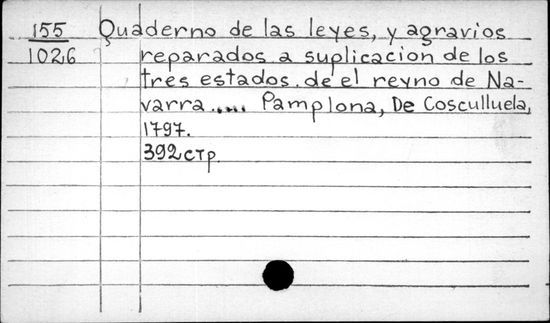 155 Quaderno de las leyes, y agravios
1026 reparados a suplicacion de los
tres estados de el reyno de Na-
varra..... Pamplona, De Cosculluela,
1797.
392 стр.